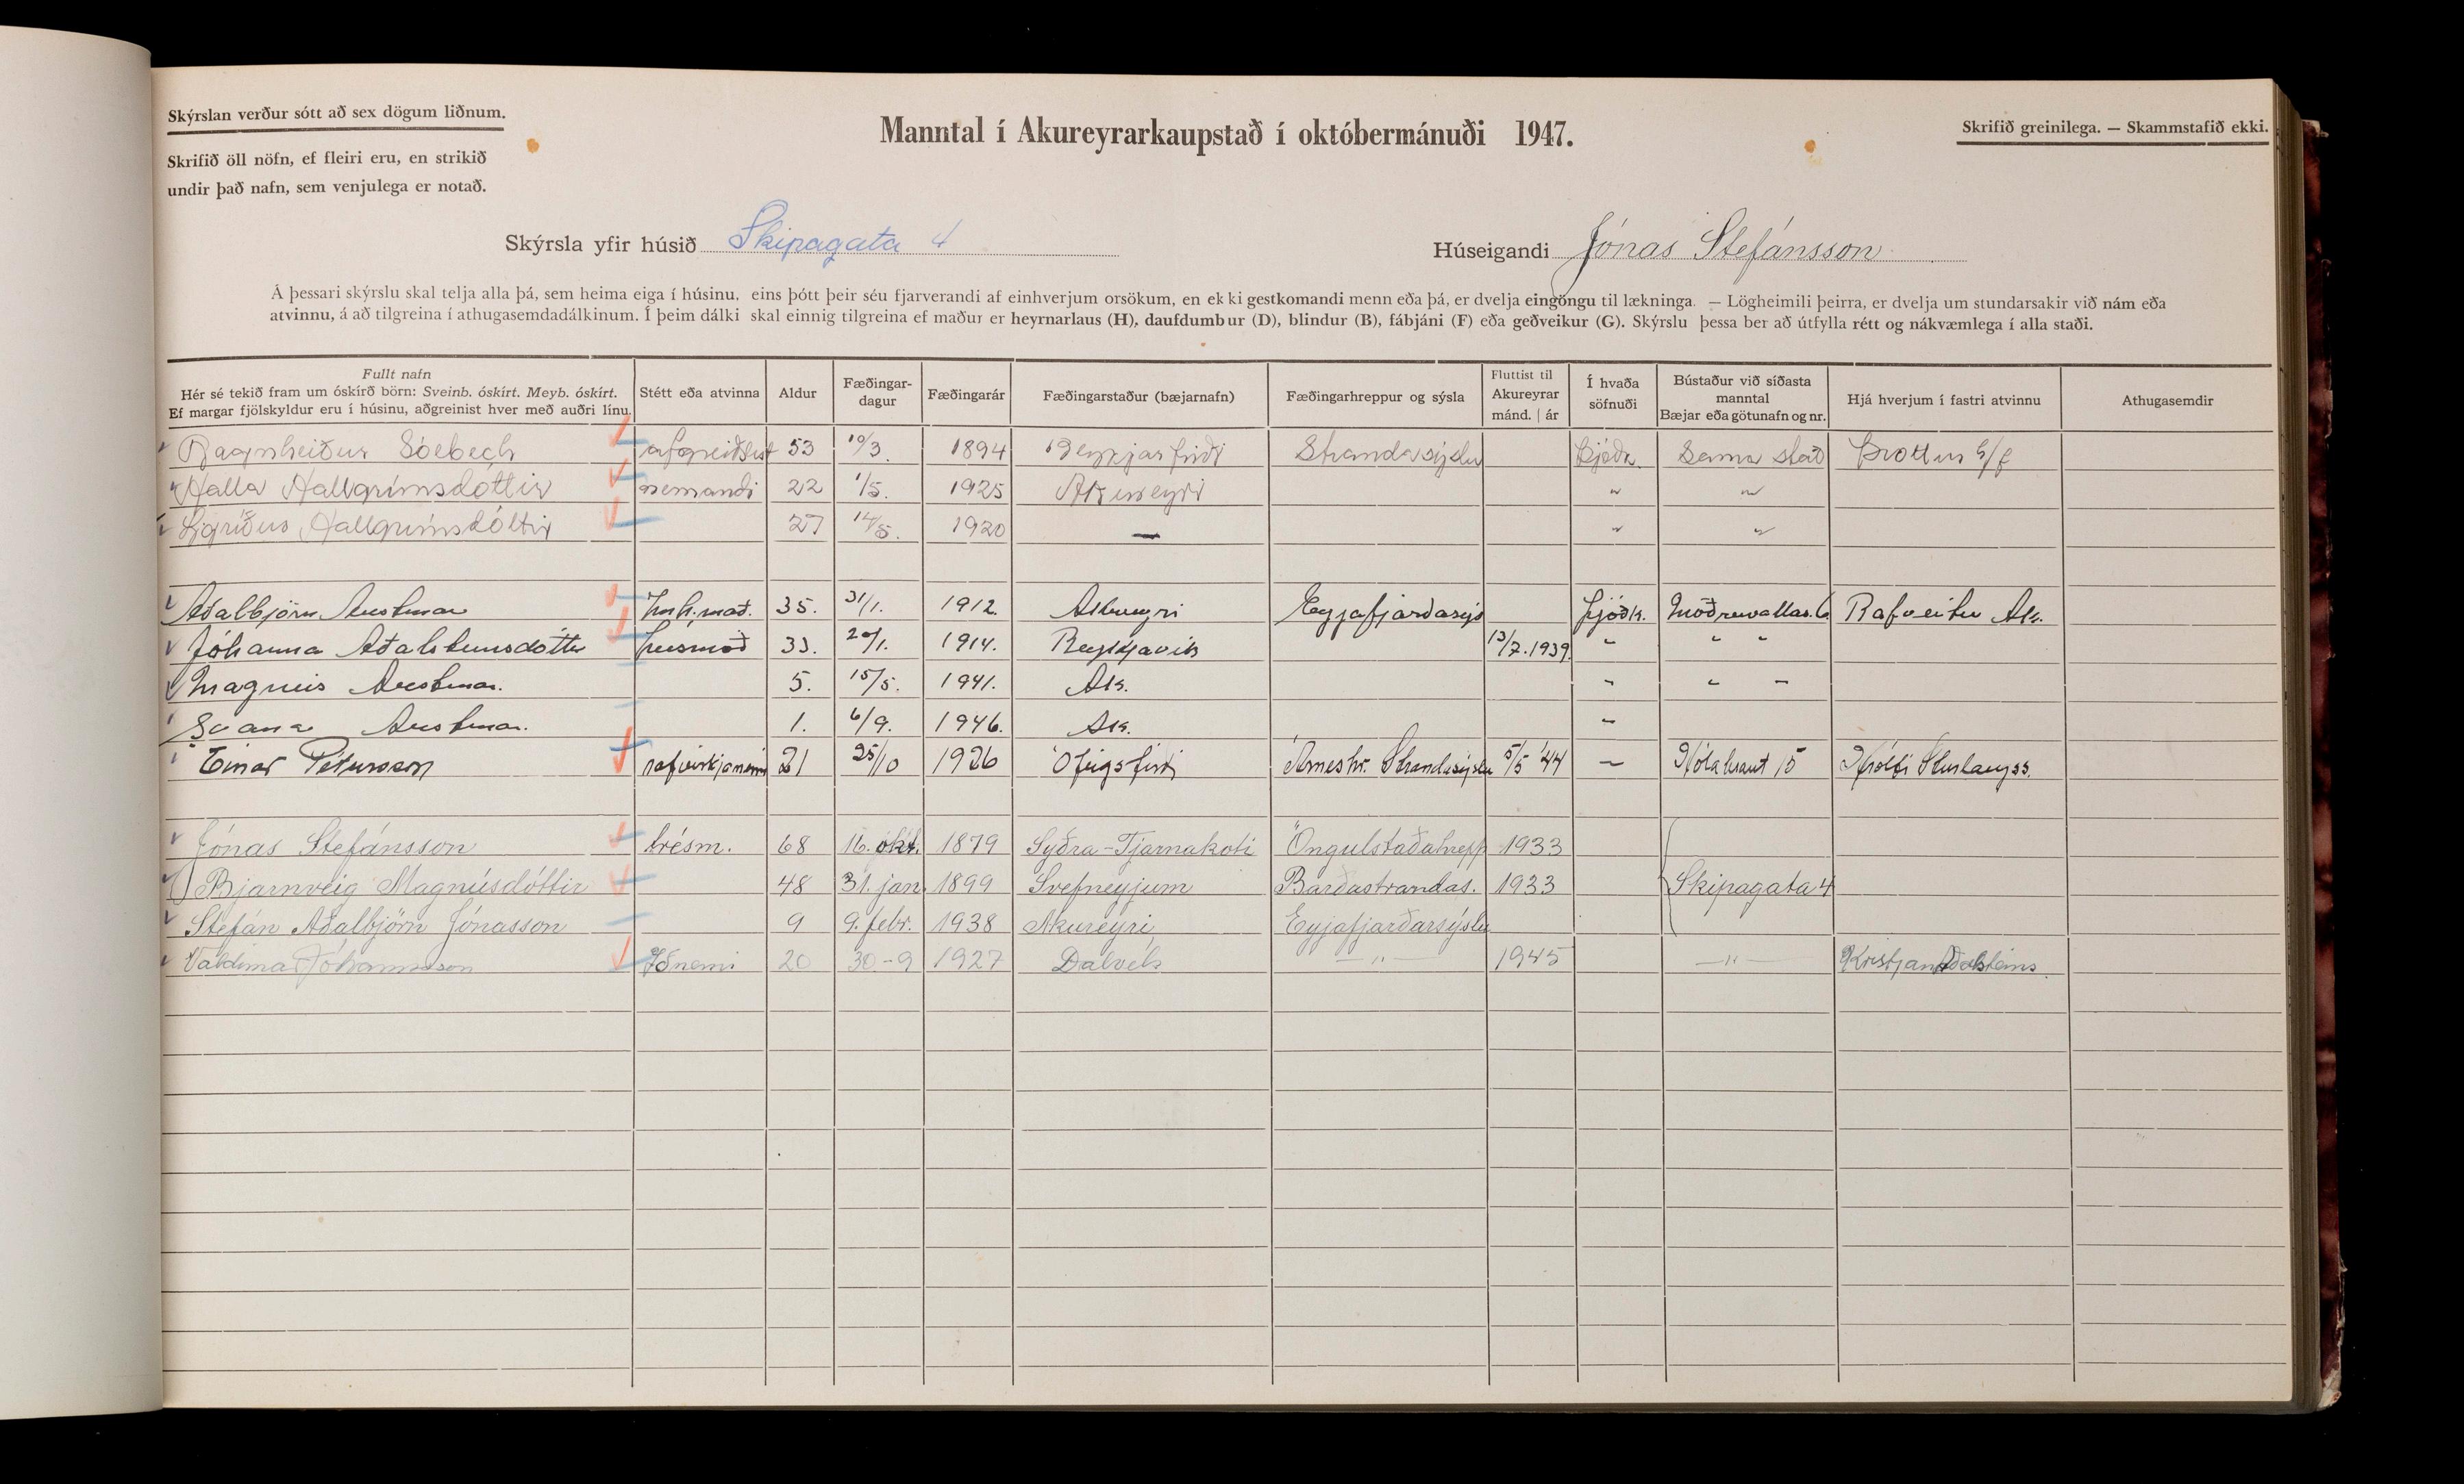 Skýrslan verður sótt að sex dögum liðnum.
Manntal í Akureyrarkaupstað í októbermánuði 1947.
Skrifið greinilega. — Skammstafið ekki.
Skrifið öll nöfn, ef fleiri eru, en strikið
undir það nafn, sem venjulega er notað.
Skýrsla yfir húsið Skipagata 4
Húseigandi Jónas Stefánsson
Á þessari skýrslu skal telja alla þá, sem heima eiga í húsinu, eins þótt þeir séu fjarverandi af einhverjum orsökum, en ekki gestkomandi menn eða þá, er dvelja eingöngu til lækninga. — Lögheimili þeirra, er dvelja um stundarsakir við nám eða
atvinnu, á að tilgreina í athugasemdadálkinum. Í þeim dálki skal einnig tilgreina ef maður er heyrnarlaus (H), daufdumbur (D), blindur (B), fábjáni (F) eða geðveikur (G). Skýrslu þessa ber að útfylla rétt og nákvæmlega í alla staði.
Fullt nafn
Hér sé tekið fram um óskírð börn: Sveinb. óskírt. Meyb. óskírt.
Ef margar fjölskyldur eru í húsinu, aðgreinist hver með auðri línu.
Stétt eða atvinna
Aldur
Fæðingar-
dagur
Fæðingarár
Fæðingarstaður (bæjarnafn)
Fæðingarhreppur og sýsla
Fluttist til
Akureyrar
mánd. | ár
Í hvaða
söfnuði
Bústaður við síðasta
manntal
Bæjar eða götunafn og nr.
Hjá hverjum í fastri atvinnu
Athugasemdir
Ragnheiður Sóebech 53 10/3. 1894 Reykjarfirði Strandasýslu Þjóðk. Sama stað Þrottur h/f
Halla Hallgrímsdóttir nemandi 22 1/5. 1925 Akureyri " "
Sigríður Hallgrímsdóttir 27 14/5. 1920 — " "
Aðalbjörn Austmar Inh.mað. 35. 31/1. 1912. Akureyri Eyjafjarðasýs Þjóðk. Möðruvallas. 6 Rafveitu Ak.
Jóhanna Aðalsteinsdóttir húsmóð 33. 20/1. 1914. Reykjavik 13/7.1939. " " "
Magnús Austmar. 5. 15/5. 1941. Ak. " " "
Svana Austmar. 1. 6/9. 1946. Ak. "
Einar Pétursson rafvirkjanemi 21 25/10 1926 Ófeigsfirði Árneshr. Strandasýslu 5/5 '44 — Hólabraut 15 Indriði
Jónas Stefánsson trésm. 68 16. okt. 1879 Syðra-Tjarnakoti Öngulstaðahrepp 1933
Bjarnveig Magnúsdóttir 48 31. jan. 1899 Svefneyjum Barðastrandas. 1933 Skipagata 4
Stefán Aðalbjörn Jónasson 9 9. febr. 1938 Akureyri Eyjafjarðarsýslu
Valdimar Jóhannsson Iðnemi 20 30-9 1927 Dalvík —"— 1945 —"— Kristján Aðalsteins.